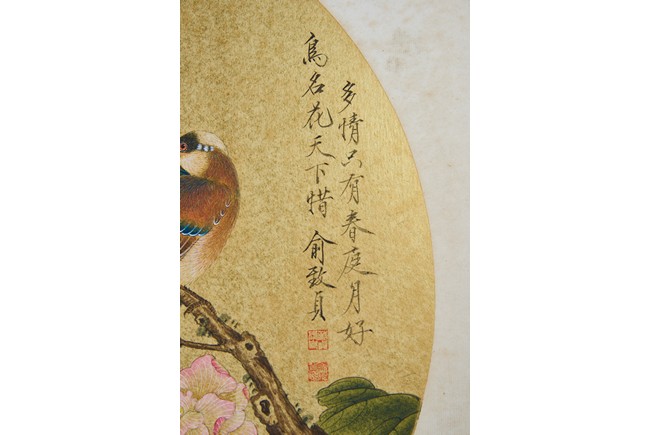 多情只有春庭月好
鳥名花天下惜 俞致貞